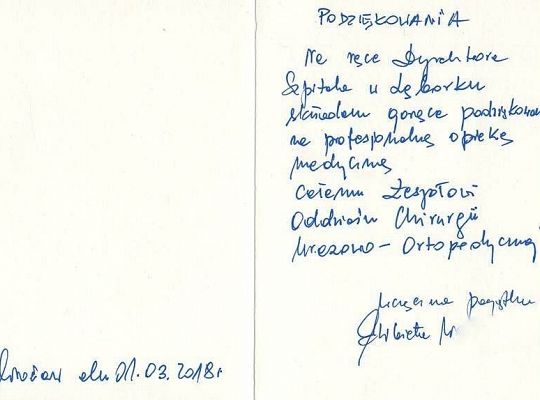 PODZIĘKOWANIA
Na ręce Dyrektora
Szpitala w Lęborku
składam gorące podziękowan
na profesjonalną opiekę
medyczną
całemu Zespołowi
Oddziału Chirurgii
Urazowo - Ortopedycznej
Elżbieta
dn 01.03.2018r